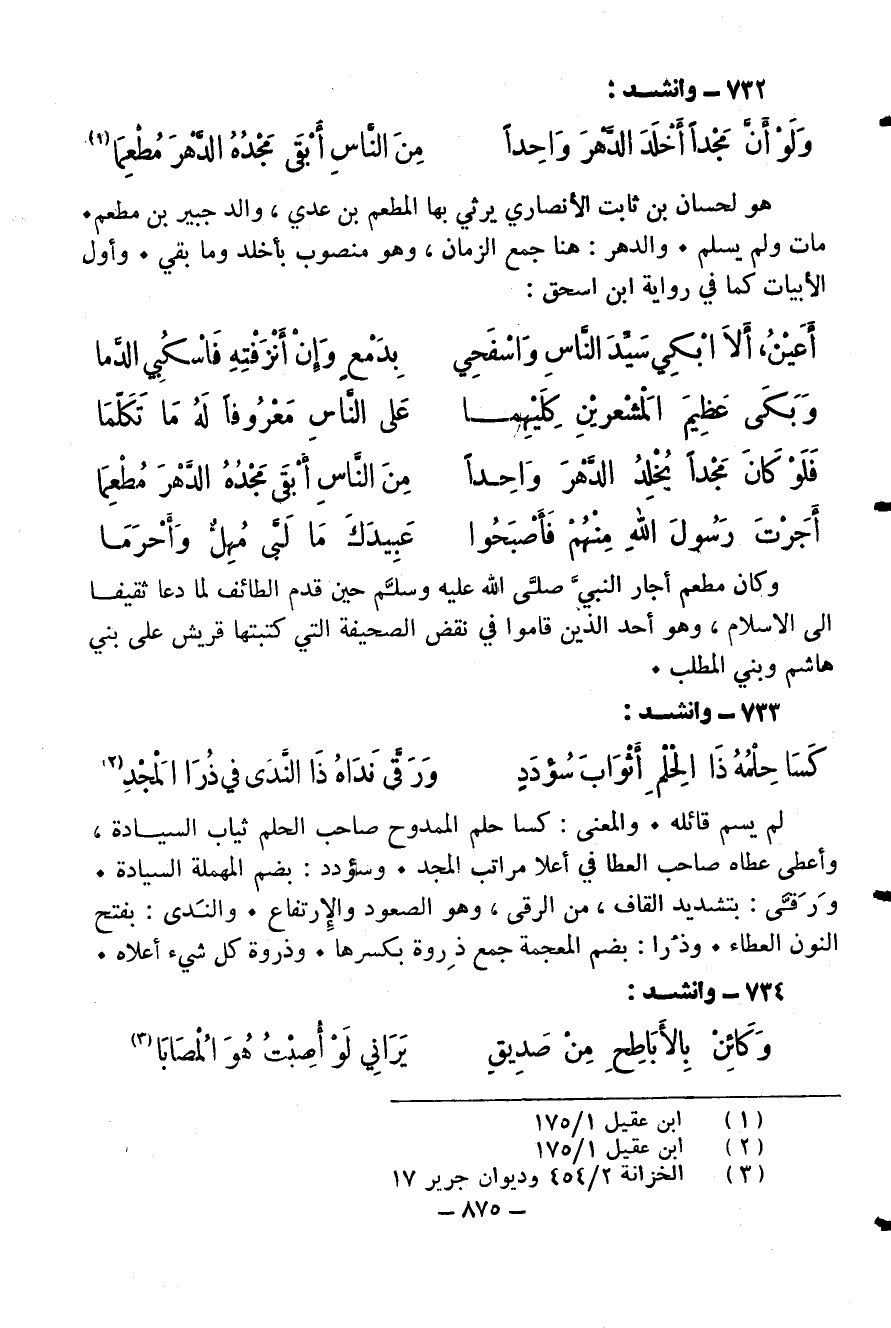 ٧٣٢ ـ وانشـد :
وَلَوْ أَنَّ مَجْداً أَخْلَدَ الدَّهْرَ وَاحِداً مِنَ النَّاسِ أَبْقَى مَجْدُهُ الدَّهْرَ مُطْعِمَا(١)
هو لحسان بن ثابت الأنصاري يرثي بها المطعم بن عدي ، والد جبير بن مطعم٠
مات ولم يسلم ٠ والدهر : هنا جمع الزمان ، وهو منصوب بأخلد وما بقي ٠ وأول
الأبيات كما في رواية ابن اسحق :
أَعَيْنُ، أَلاَ ابْكِي سَيِّدَ النَّاسِ وَاسْفَحِي بِدَمْعٍ وَإِنْ أَنْزَفْتِهِ فَاسْكُبِي الدَّما
وَبَكَى عَظِيمَ الْمَشْعَرَيْنِ كِلَيْهِمـا عَلى النَّاسِ مَعْرُوفاً لَهُ مَا تَكَلَّمَا
فَلَوْ كَانَ مَجْداً يُخْلِدُ الدَّهْرَ وَاحِـداً مِنَ النَّاسِ أَبْقَى مَجْدُهُ الدَّهْرَ مُطْعِمَا
أَجَرْتَ رَسُولَ اللهِ مِنْهُمْ فَأَصْبَحُوا عَبِيدَكَ مَا لَبَّى مُهِلٌّ وَأَحْرَمَـا
وكان مطعم أجار النبيَّ صلَّى الله عليه وسلَّم حين قدم الطائف لما دعا ثقيفـا
الى الاسلام ، وهو أحد الذين قاموا في نقض الصحيفة التي كتبتها قريش على بني
هاشم وبني المطلب ٠
٧٣٣ ـ وانشـد :
كَسَا حِلْمُهُ ذَا الْحِلْمِ أَثْوَابَ سُؤْدَدٍ وَرَقَّى نَدَاهُ ذَا النَّدَى في ذُرَا الْمَجْدِ(٢)
لم يسم قائله ٠ والمعنى : كسا حلم الممدوح صاحب الحلم ثياب السيـادة ،
وأعطى عطاه صاحب العطا في أعلا مراتب المجد ٠ وسؤدد : بضم المهملة السيادة ٠
وَرَقَّى : بتشديد القاف ، من الرقى ، وهو الصعود والإرتفاع ٠ والنَدى : بفتح
النون العطاء ٠ وذُرا : بضم المعجمة جمع ذِروة بكسرها ٠ وذروة كل شيء أعلاه ٠
٧٣٤ ـ وانشـد :
وَكَائِنْ بِالأَبَاطِحِ مِنْ صَدِيقٍ يَرَانِي لَوْ أُصِبْتُ هُوَ الْمُصَابَا(٣)
(١) ابن عقيل ١/١٧٥
(٢) ابن عقيل ١/١٧٥
(٣) الخزانة ٢/٤٥٤ وديوان جرير ١٧
ـ ٨٧٥ ـ